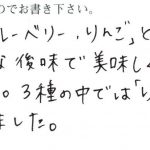 のでお書き下さい。
ルーベリー、りんご」と
な後味で美味しく
。3種の中では「り
ました。